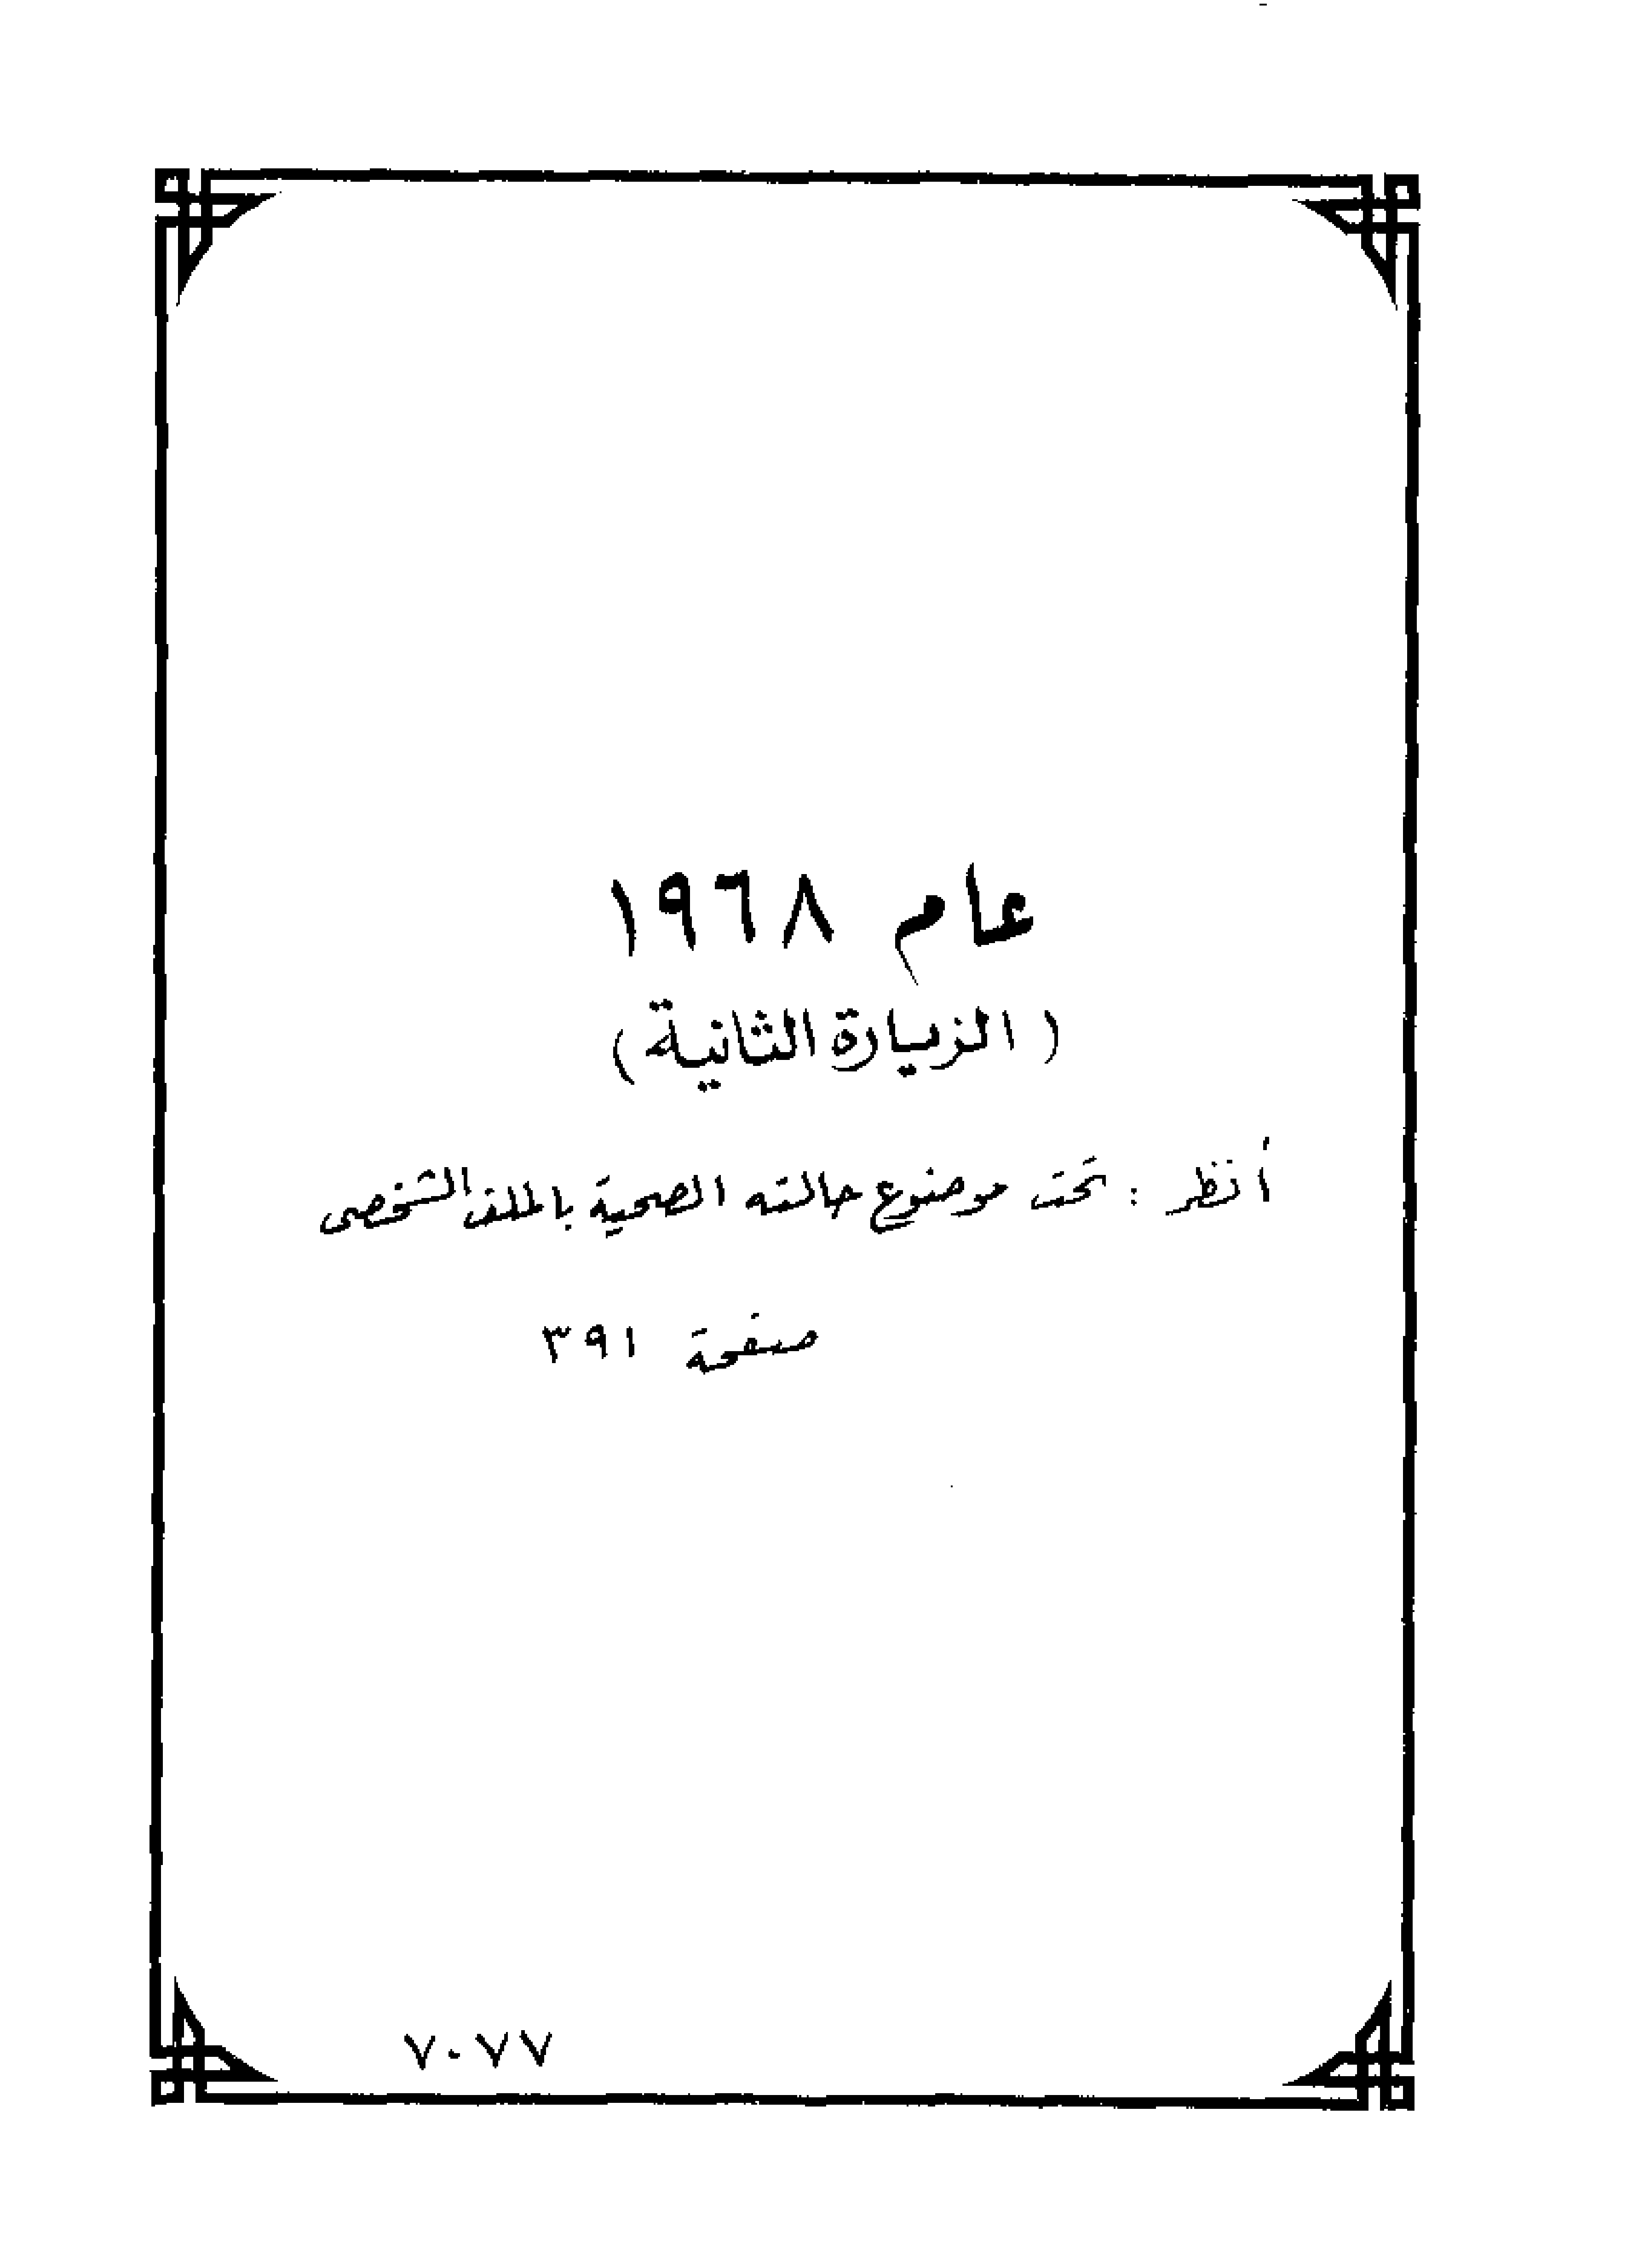 عام ١٩٦٨
(الزيارة الثانية)
أنظر : تحت موضوع حالته الصحية بالملف الشخصى
صفحة ٣٩١
٧٠٧٧